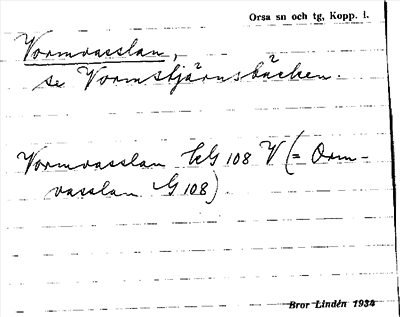 Orsa sn och tg, Kopp. l.
Vormvasslan,
se Vormstjärnsbäcken.
Vormvasslan kG 108 V (= Orm-
vasslan G 108).
Bror Lindén 1934